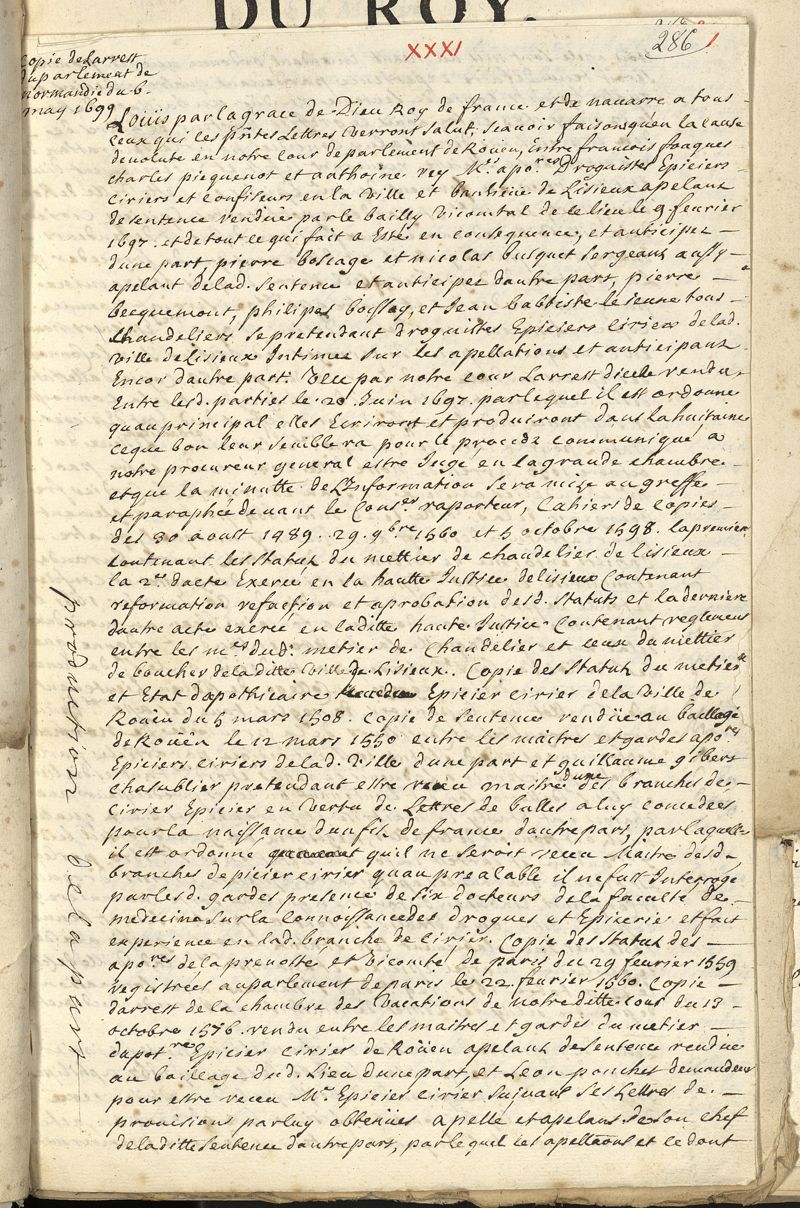 DU ROY.
XXXI
286
Copie de Larrest
du parlement de
Normandie du 6.
may 1699
Loüis par la grace de Dieu Roy de france et de navarre a tous
ceux qui ces pñtes Lettres verront salut, Scavoir faisons qu'en la cause
devolute en notre cour de parlement de Roüen, entre francois fouques
charles piequenot et anthoine rey Mes apo.res Droguistes Epiciers
Ciriers et confiseurs en la ville et banlieüe de Lisieux apelant
de sentence rendüe par le bailly vicomtal de ce lieu le 9 fevrier
1697. et de tout ce qui fait a Esté en consequence, et anticipez
d'une part, pierre boscage et nicolas busquet sergeant aussy
apelant de lad. sentence et anticipez d'autre part, pierre
becquemont, philipes bossey, et Jean babtiste le jeune tous
Chandeliers se pretendant droguistes Epiciers ciriers de lad.
ville de Lisieux Intimez sur les apellations et anticipant
Encor d'autre part. Veu par notre cour Larrest d'icelle rendu
Entre lesd. parties le 20 Juin 1697. par lequel il est ordonné
qu'au principal elles Ecriront et produiront dans la huitaine
ce que bon leur semblera pour le procedz communiqué a
notre procureur general estre Jugé en la grande chambre
et que la minutte de L'Information sera mize au greffe
et paraphée devant le Cons.er raporteur, Cahiers de copies
des 30 aoust 1489. 29. 9bre 1560 et 5 octobre 1598. la premiere
contenant les statuts du mettier de chandelier de lisieux
la 2e. d'acte Exercé en la hautte Justice de lisieux Contenant
reformation refaction et aprobation desd. statuts et la derniere
d'autre acte exercé en laditte haute Justice. Contenant reglement
entre les m.es dud. metier de Chandelier et ceux du mettier
de boucher de la ditte ville de Lisieux. Copie des Statuts du metier
et Etat d'apothicaire Epicier cirier de la ville de
Roüen du 5 mars 1508. Copie de sentence rendüe au bailliage
de Roüen le 12 mars 1550 entre les maitres et gardes apo.res
Epiciers ciriers de lad. ville d'une part et guillaume gibert
chasublier pretendant estre receu maitre d'une des branches de
Cirier Epicier en vertu de Lettres de bulles a luy concedées
pour la naissance d'un fils de france d'autre part, par laquelle
il est ordonné qu'il ne seroit receu Maitre desd.
branches d'epicier cirier qu'au prealable il ne fust Interrogé
par lesd. gardes presence de six docteurs de la faculté de
medecine sur la Connoissance des drogues et Epicerie et fait
experience en lad. branche de cirier. Copie des statuts des
apo.res de la prevosté et vicomté de paris du 29 fevrier 1559
registrées au parlement de paris le 22. fevrier 1560. Copie
d'arrest de la chambre des vacations de notre ditte cour du 13
octobre 1576. rendu entre les maitres et gardes du metier
d'apot.res Epicier cirier de Roüen apelant de sentence rendüe
au bailliage dud. Lieu d'une part, et Leon ponches demandeur
pour estre receu M.e Epicier cirier suivant ses Lettres de
provisions par luy obtenües apellé et apelant de son chef
de la ditte sentence d'autre part, par lequel les apellations et ce dont
production de la part